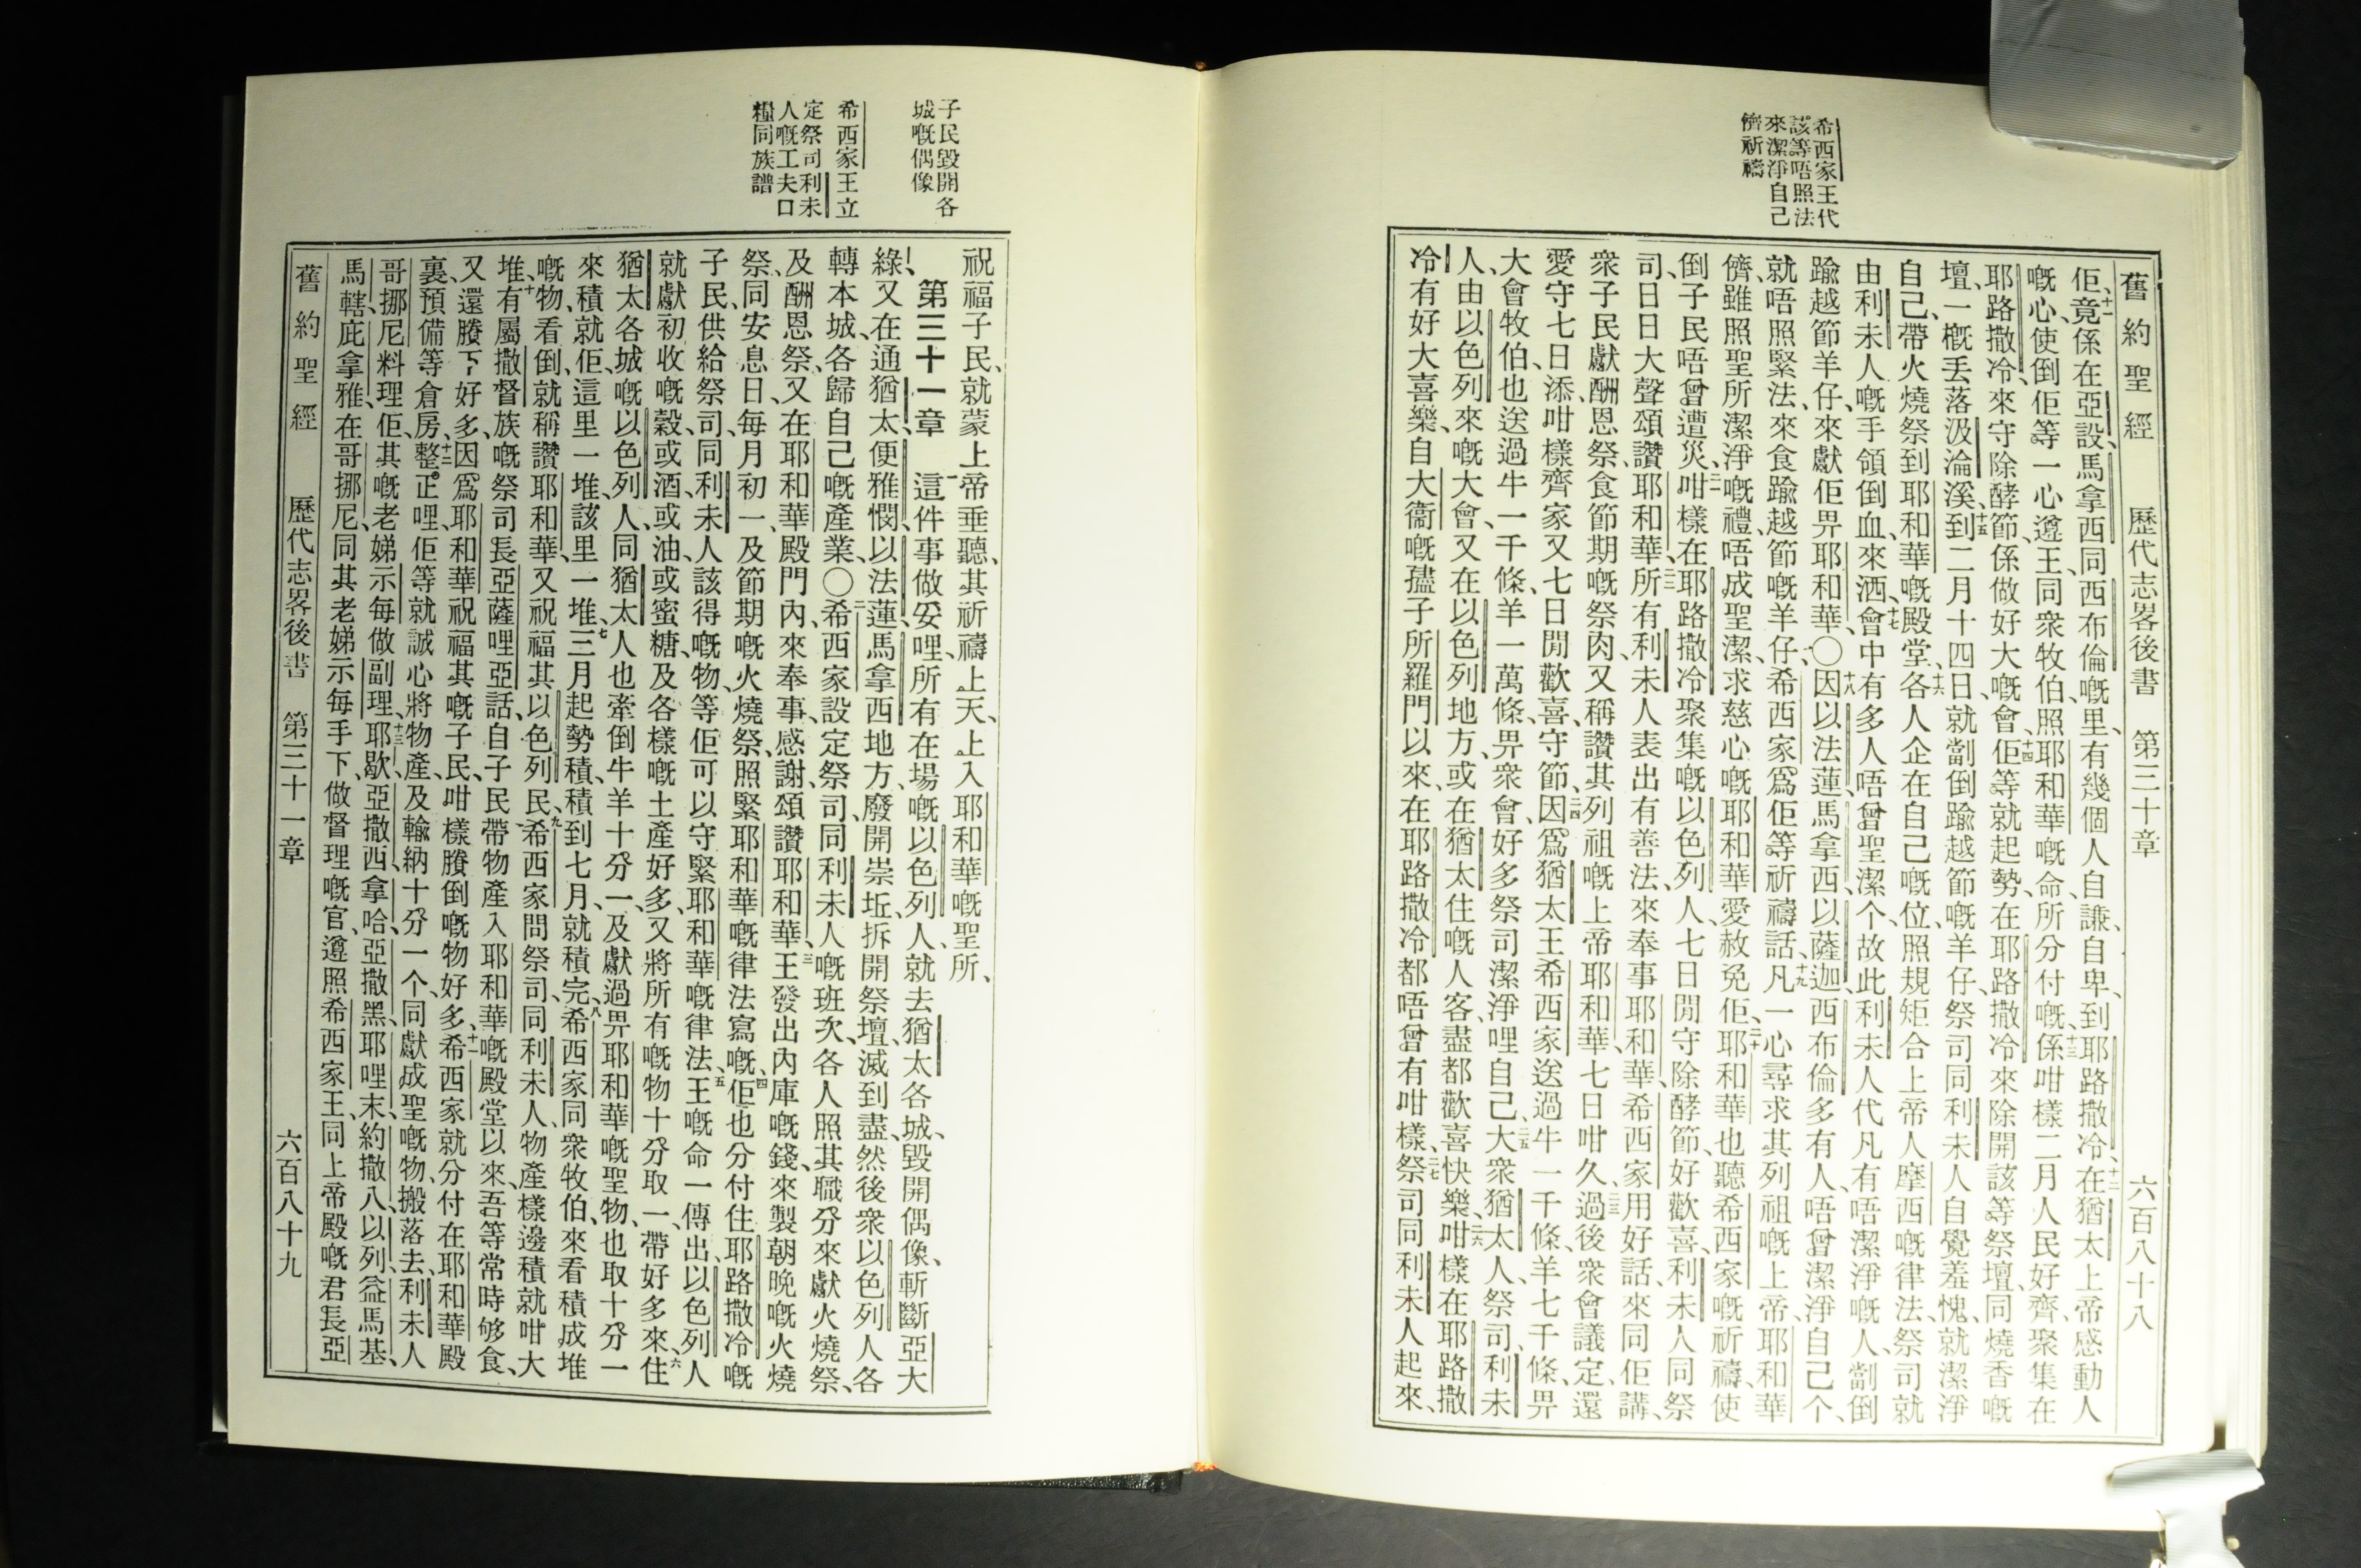 希西家王代
該等唔照法
來潔淨自己
儕祈禱
舊約聖經　歷代志畧後書　第三十章　六百八十八
佢、十一竟係在亞設、馬拿西、同西布倫嘅里、有幾個人自謙、自卑、到耶路撒冷、十二在猶太上帝感動人
嘅心、使倒佢等一心遵王、同衆牧伯、照耶和華嘅命、所分付嘅、十三係咁樣二月人民好齊、聚集在
耶路撒冷、來守除酵節、係做好大嘅會、十四佢等就起勢、在耶路撒冷來除開該等祭壇、同燒香嘅
壇、一概丟落汲淪溪、十五到二月十四日、就劏倒踰越節嘅羊仔、祭司同利未人自覺羞愧、就潔淨
自己、帶火燒祭到耶和華嘅殿堂、十六各人企在自己嘅位、照規矩合上帝人摩西嘅律法、祭司就
由利未人嘅手領倒血、來洒、十七會中有多人唔曾聖潔个、故此利未人代凡有唔潔淨嘅人、劏倒
踰越節羊仔、來獻佢畀耶和華、〇十八因以法蓮、馬拿西、以薩迦、西布倫多有人、唔曾潔淨自己个、
就唔照緊法、來食踰越節嘅羊仔、希西家爲佢等祈禱話、十九凡一心尋求其列祖嘅上帝、耶和華
儕、雖照聖所潔淨嘅禮、唔成聖潔、求慈心嘅耶和華愛赦免佢、二十耶和華也聽希西家嘅祈禱、使
倒子民唔曾遭災、二一咁樣在耶路撒冷聚集嘅以色列人、七日閒守除酵節、好歡喜、利未人同祭
司、日日大聲頌讚耶和華、二二所有利未人表出有善法、來奉事耶和華、希西家用好話、來同佢講、
衆子民獻酬恩祭、食節期嘅祭肉、又稱讚其列祖嘅上帝耶和華七日咁久、二三過後衆會議定、還
愛守七日、添咁樣齊家又七日閒歡喜、守節、二四因爲猶太王希西家送過牛一千條、羊七千條、畀
大會、牧伯也送過牛一千條、羊一萬條、畀衆會、好多祭司潔淨哩自己、二五大衆猶太人、祭司、利未
人、由以色列來嘅大會、又在以色列地方、或在猶太住嘅人客、盡都歡喜快樂、二六咁樣在耶路撒
冷有好大喜樂、自大衞嘅孻子所羅門以來、在耶路撒冷都唔曾有咁樣、二七祭司同利未人起來、
子民毀開各
城嘅偶像
希西家王立
定祭司利未
人嘅工夫口
糧同族譜
祝福子民、就蒙上帝垂聽、其祈禱上天、上入耶和華嘅聖所、
第三十一章　一這件事做妥哩、所有在場嘅以色列人、就去猶太各城、毀開偶像、斬斷亞大
綠、又在通猶太、便雅憫、以法蓮、馬拿西地方、廢開崇坵、拆開祭壇、滅到盡、然後衆以色列人各
轉本城、各歸自己嘅產業、〇二希西家設定祭司、同利未人嘅班次、各人照其職分、來獻火燒祭、
及酬恩祭、又在耶和華殿門內、來奉事、感謝、頌讚耶和華、三王發出內庫嘅錢、來製朝晚嘅火燒
祭、同安息日、每月初一、及節期嘅火燒祭、照緊耶和華嘅律法寫嘅、四佢也分付住耶路撒冷嘅
子民、供給祭司、同利未人該得嘅物、等佢可以守緊耶和華嘅律法、五王嘅命一傳出、以色列人
就獻初收嘅穀、或酒、或油、或蜜糖、及各樣嘅土產好多、又將所有嘅物十分取一、帶好多來、六住
猶太各城嘅以色列人、同猶太人也牽倒牛羊十分一、及獻過畀耶和華嘅聖物、也取十分一
來積、就佢這里一堆、該里一堆、七三月起勢積、積到七月、就積完、八希西家同衆牧伯、來看積成堆
嘅物、看倒、就稱讚耶和華、又祝福其以色列民、九希西家問祭司、同利未人、物產樣邊積就咁大
堆、十有屬撒督族嘅祭司長亞薩哩亞話、自子民帶物產入耶和華嘅殿堂以來、吾等常時够食、
又還賸下好多、因爲耶和華祝福其嘅子民、咁樣賸倒嘅物好多、十一希西家就分付在耶和華殿
裏預備等倉房、整正哩、十二佢等就誠心將物產、及輸納十分一个、同獻成聖嘅物、搬落去、利未人
哥挪尼料理佢、其嘅老娣示每做副理、十三耶歇、亞撒西、拿哈、亞撒黑、耶哩末、約撒八、以列、益馬基
馬轄、庇拿雅、在哥挪尼、同其老娣示每手下、做督理嘅官、遵照希西家王、同上帝殿嘅君長亞
舊約聖經　歷代志畧後書　第三十一章　六百八十九